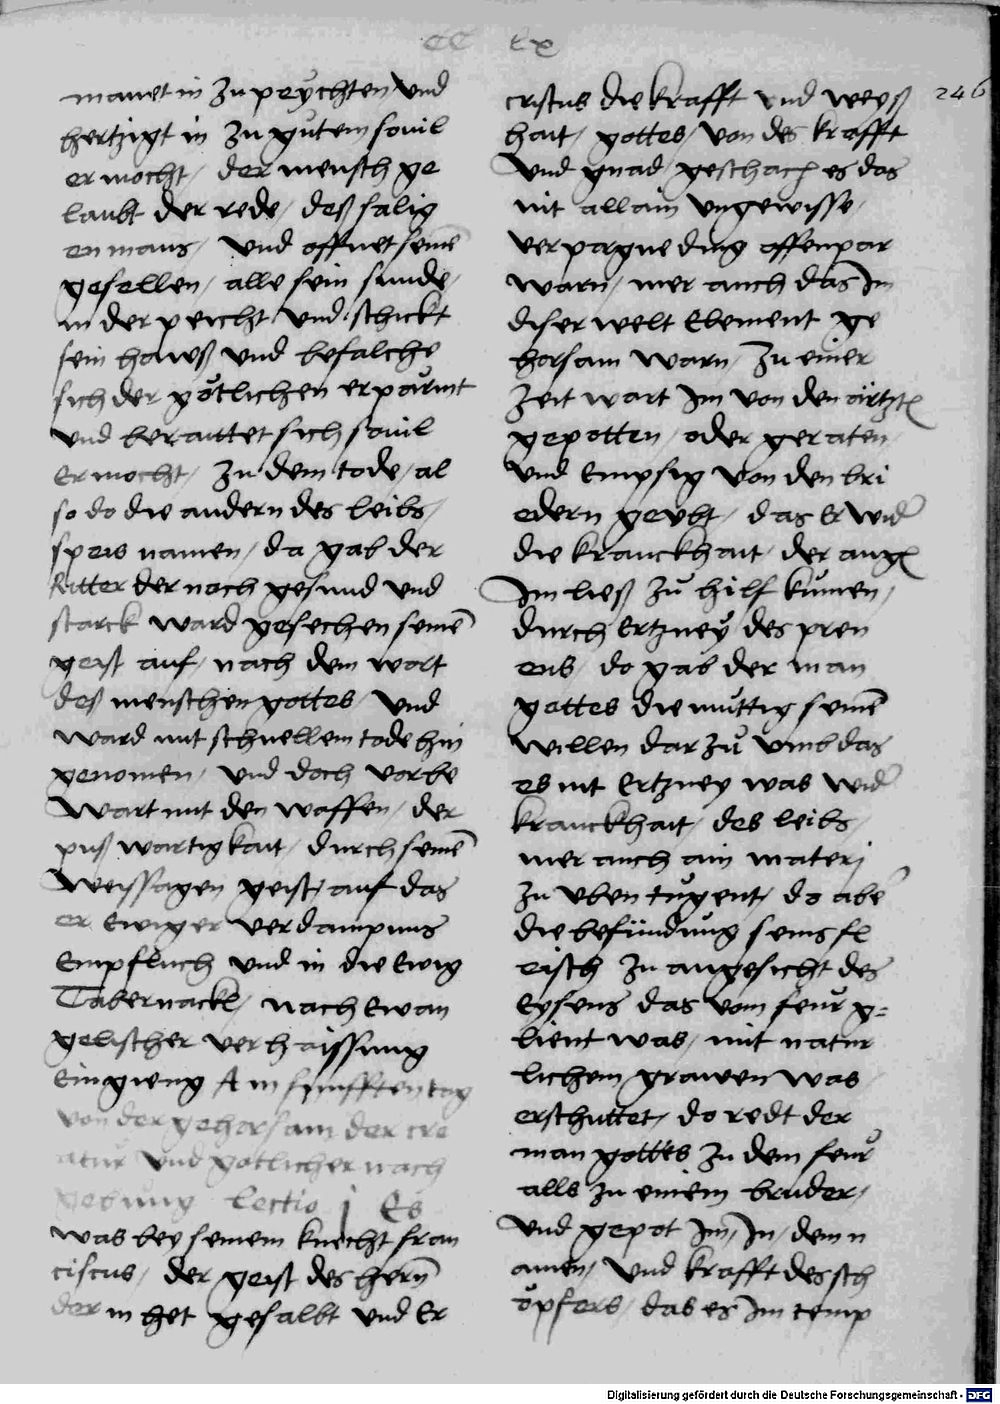 CC lx
246
manet in zu peychten und
hertzigt in zu gutem souil
er mocht / der mensch ge
laubt der rede / deß salig
en mans / und offnet seinē
gesellen / alle sein sunde /
in der peicht und schickt
sein hawß und befalche
sich der götlichen erparmt
und beraittet sich souil
Er mocht / zu dem tode / al
so do die andern des leibs /
speis namen / da gab der
Ritter der noch gesund und
starck ward gesechen seinē
geist auf / nach dem wort
deß menschen gottes / und
ward mit schnellem tode hin
genomen / und doch vorbe
wart mit den waffen / der
puß wartigkait / durch seinē
weissagen geist / auf das
er Ewiger verdampnus
Empfluch und in die Ewig
Tabernackl / nach Ewan
gelischer verhaissung
Eingieng Am funfften tag
von der gehorsam der cre
atur und gotlicher nach
gebung Lectio j Es
was bey seinem knecht fran
ciscus / der geist des hern̄
der in het gesalbt und Er
cristus die krafft und weyß
hait / gottes / von des krafft
und gnad / geschach es das
nit allain ungewisse /
verpargne ding offenpar
warn / mer auch das Im
diser welt Element ge
horsam warn / zu einer
zeit wart Im von den ärtztn
gepotten / oder geraten /
und Empsig von den bri
edern geubt / das Er wider
die kranckhait / der augn
Im ließ zu hilf kumen /
durch Ertzney des pren
ens / do gab der man
gottes die muttig seinē
willen darzu umb das
es nit Ertzney was wider
kranckhait / des leibs /
mer auch ain materj
zu uben tugent / do aber
die befindung seins fl
eisch zu angesicht des
Eysens das vom feur g=
lient was / mit natur
lichem grawen was /
erschuttet / do redt der
man gottes zu dem feur
alls zu einem bruder /
und gepot Im / In / dem n
amen / und krafft des sch
öpfers / das es Im temp
Digitalisierung gefördert durch die Deutsche Forschungsgemeinschaft - DFG